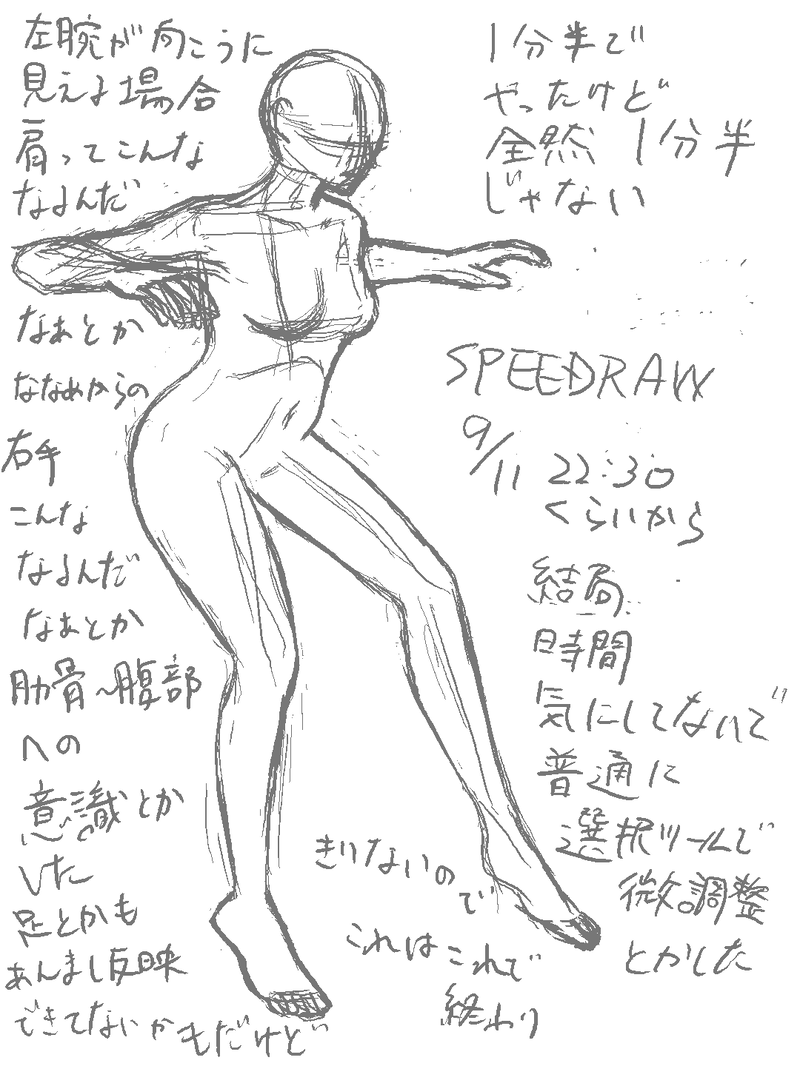 左腕が向こうに
見える場合
肩ってこんな
なるんだ
なぁとか
ななめからの
右手
こんな
なるんだ
なぁとか
肋骨〜腹部
への
意識とか
した
足とかも
あんまし反映
できてないかもだけど
1分半で
やったけど
全然1分半
じゃない
SPEEDRAW
9/11 22:30
くらいから
結局
時間
気にしてないで
普通に
選択ツールで
微調整
とかした
きりないので
これはこれで
終わり